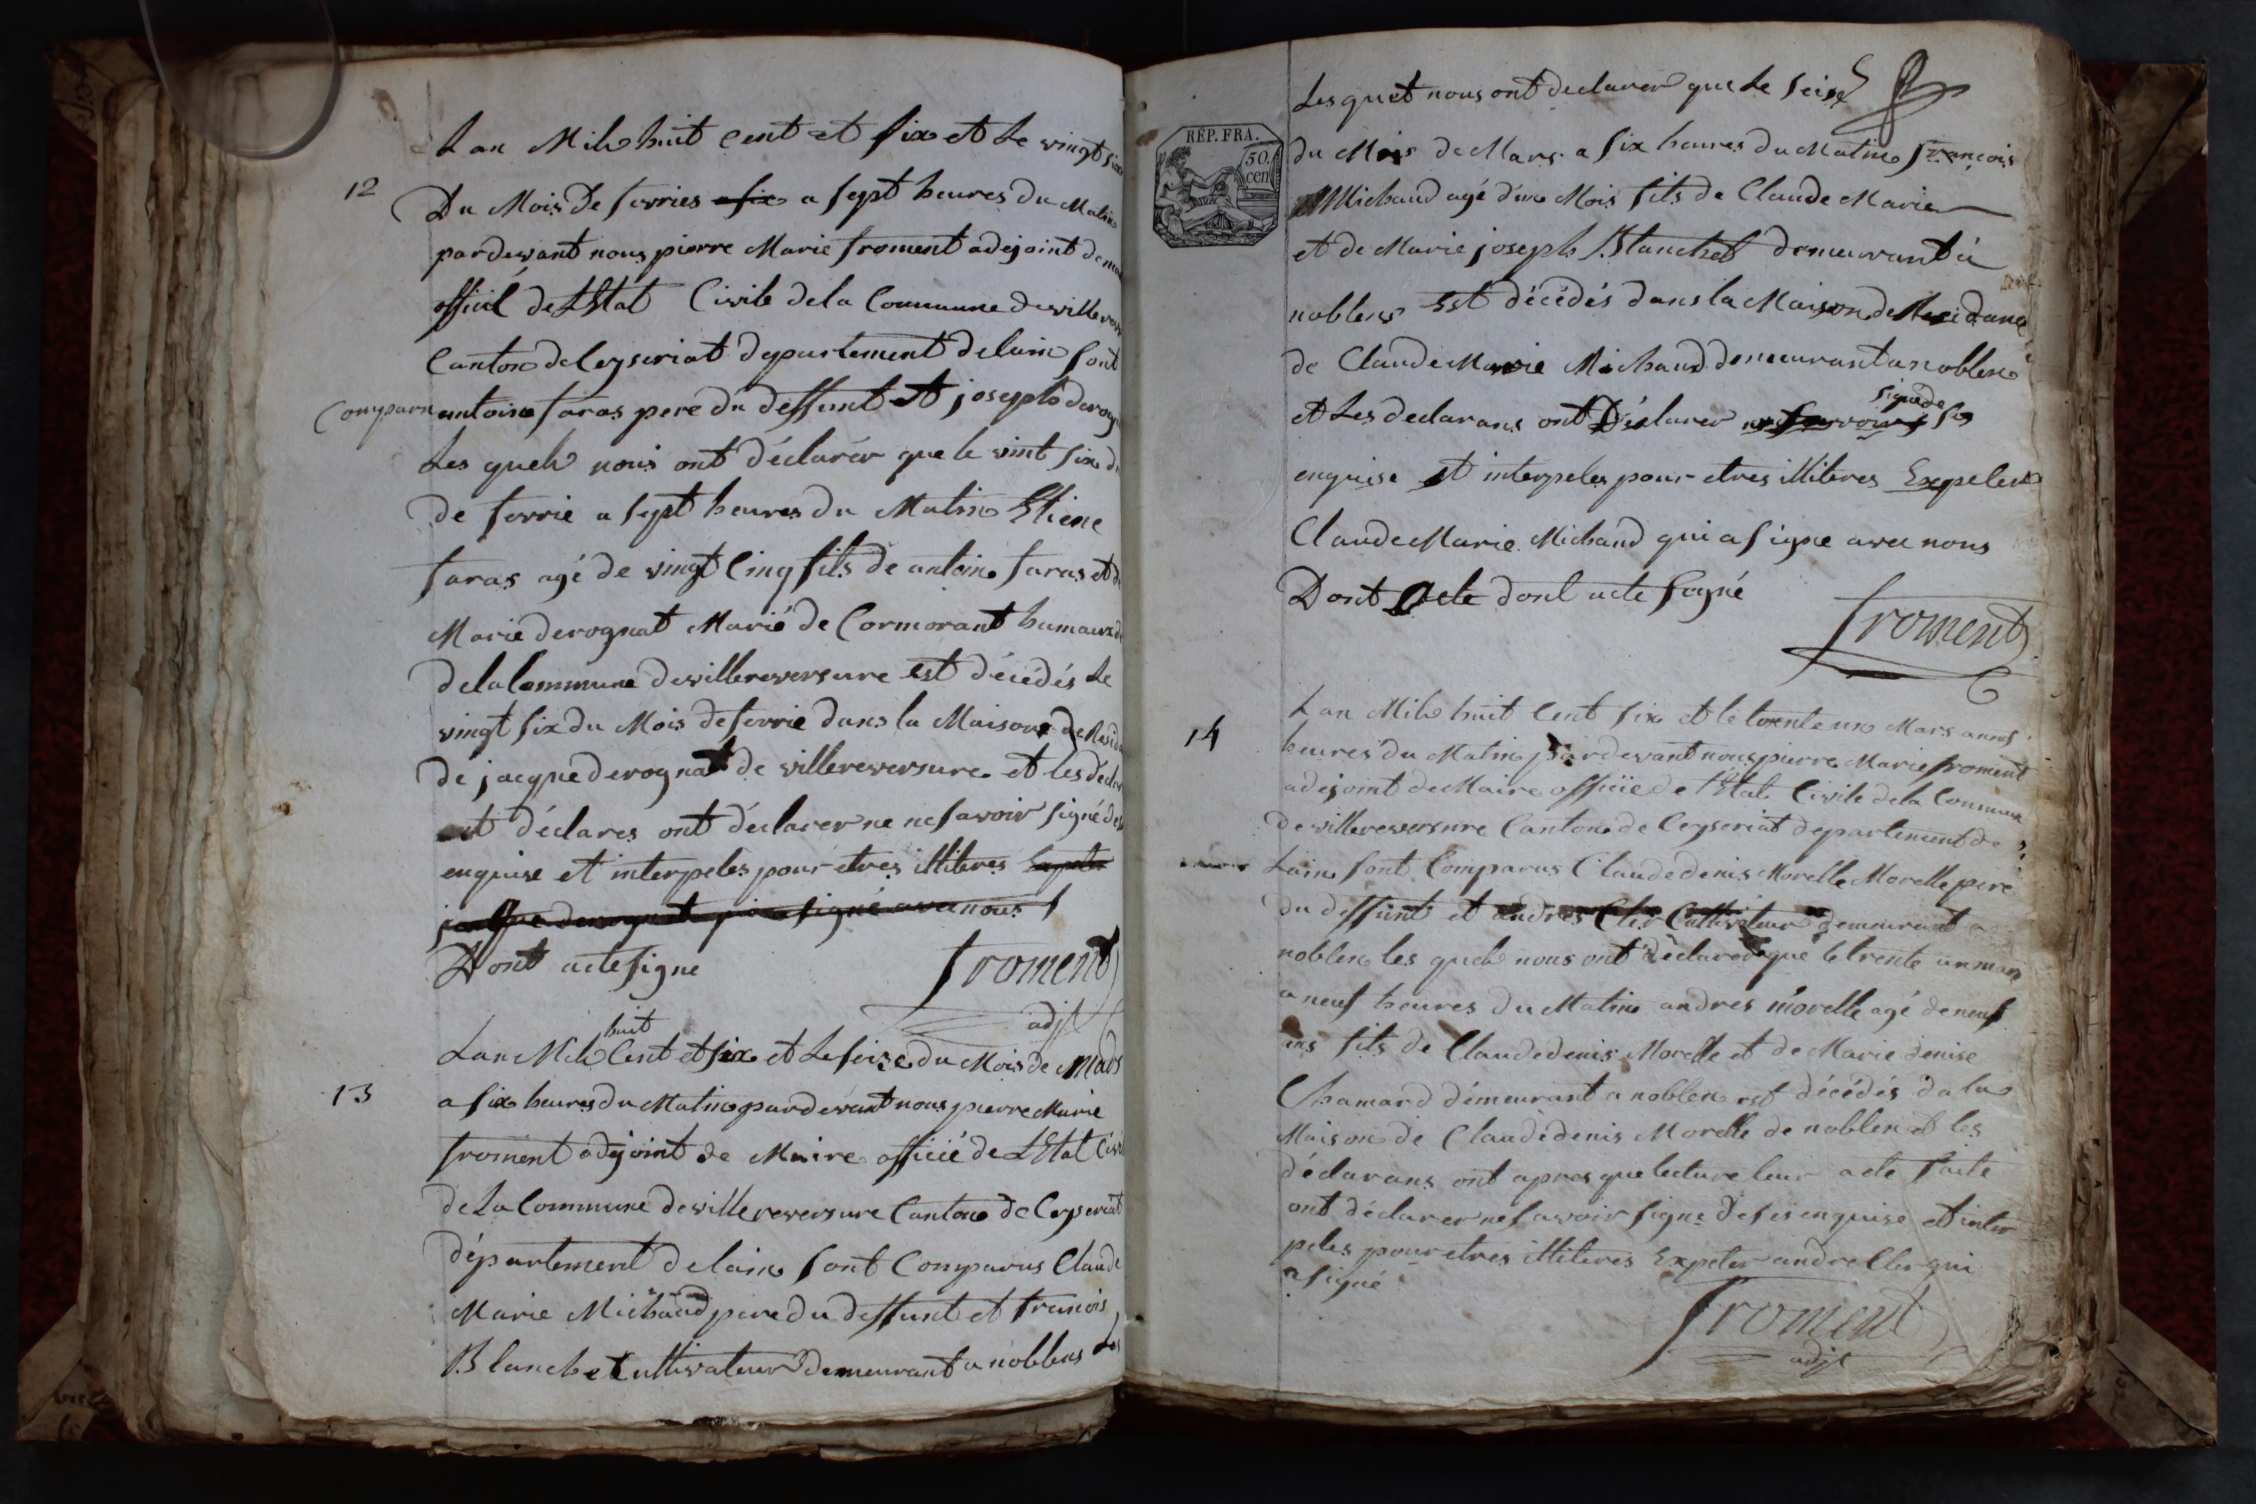 12
Lan Mile huit Cent et six et Le vingt six
Du Mois De fevries a six a sept heures du Matin
pardevant nous pierre Marie froment adejoint de
officié de LEtat Civile dela Commune de ville
Canton de Ceyseriat departement delain sont
Comparu antoine faras pere du deffunt et joseph derog
Les quels nous ont déclarér que le vint six du
De fevrie a sept heures Du Matin Etiene
faras agé de vingt Cinq fils de antoine faras et de
Marie derognat Marié de Cormorant humaux de
dela Commune devillereversure est décédés Le
vingt six du Mois de fevrie dans la Maisons de Resid
de jacque derognat de villereversure et les decla
et déclares ont déclarer ne ne savoir signé de
enquise et interpeles pour etres illiteres Expeter
jacque derognat qui a signé avec nous
Dont acte signe froment
adjt
13
Lan Mile huit Cent et six et Le seize du Mois de Mars
a six heures du Matin pardevant nous pierre Marie
froment adejoint de Maire officié de LEtat Civi
de La Commune devillereversure Canton de Ceyseriat
département delain sont Comparus Claude
Marie Michaud pere du deffunt et francois
Blanchet Cultivateur demeurant a noblens Les
Lesquet nous ont declarer que Le seize
REP. FRA.
50 cen
du Mois de Mars a six heures du Matin françois
Michaud agé d'un Mois fils de Claude Marie
et de Marie joseph Blanchet demeurant à
noblens Est décédés dans la Maison de Residance
de Claude Marie Michaud demeurant a noblens
et Les declarans ont Déclarer ne savoir signé de se
enquise et interpeles pour etres illiteres Expeter
Claude Marie Michaud qui a signe avec nous
Dont Acte dont acte signé
froment
14
Lan Mile huit Cent six et le trente un Mars a neuf
heures du Matin pardevant nous pierre Marie froment
adejoint de Maire officié de LEtat Civile dela Commune
devillereversure Canton de Ceyseriat departement de
Lain sont Comparus Claude denis Morelle Morelle pere
du deffunt et andres Cler Cultivateur demeurant a
noblens les quels nous ont déclarer que le trente un mars
a neuf heures du Matin andres morelle agé de neuf
ans fils de Claude denis Morelle et de Marie denise
Chamard démeurant a noblens est décédés da la
Maison de Claude denis Morelle de noblens et les
déclarans ont apres que lecture leur acte faite
ont déclarer ne savoir signe de se enquise et inter
peles pour etres illiteres Expeter andre Cler qui
a signé
froment
adjt